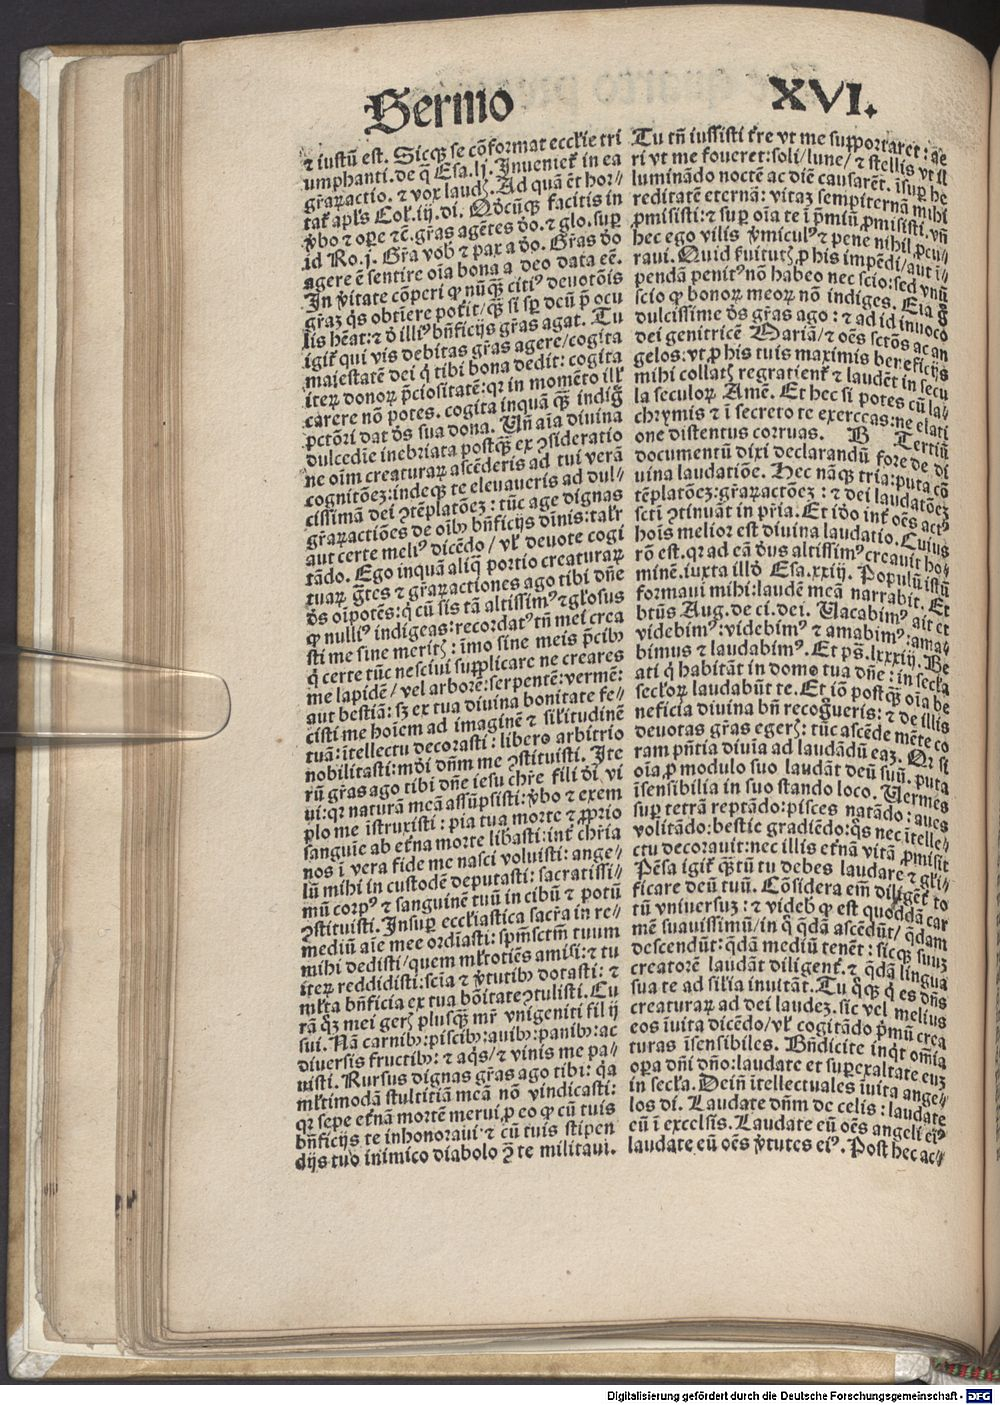 Sermo XVI.
⁊ iustū est. Sicqꝫ se cōformat ecclie tri
umphanti. de q̄ Esa. lj. Inueniet̄ in ea
gr̄aꝝactio. ⁊ vox laudꝭ. Ad quā ēt hor⸗
tat̄ apl's Col. iij. di. Qd̓cūqꝫ facitis in
v̓bo ⁊ oꝑe ⁊c̄. gr̄as agētes d̓o. ⁊ glo. suꝑ
id Ro. j. Gr̄a vob̓ ⁊ pax a d̓o. Gr̄as d̓o
agere ē sentire oīa bona a deo data eē.
In v̓itate cōperi ꝙ nūqꝫ̄ citiꝰ deuotōis
gr̄aꝫ q̓s obtīere poťit/ qꝫ̄ si sꝑ deū p̄ ocu
lis hēat: ⁊ d̓ illiꝰ bn̄ficijs gr̄as agat. Tu
igit̄ qui vis debitas gr̄as agere/ cogita
maiestatē dei q̓ tibi bona dedit: cogita
iteꝝ donoꝝ p̄ciositatē: qꝛ in momēto ill'
carere nō potes. cogita inquā qꝫ̄ indig̓
pctōri dat d̓s sua dona. Vn̄ aīa diuina
dulcedīe inebriata postqꝫ̄ ex ꝯsideratio
ne oīm creaturaꝝ ascēderis ad tui verā
cognitōeꝫ: indeqꝫ te eleuaueris ad dul⸗
cissimā dei ꝯtēplatōeꝫ: tūc age dignas
gr̄aꝝactiões de oībꝰ bn̄ficijs dīnis: talr̓
aut certe meliꝰ dicēdo/ vl' deuote cogi
tādo. Ego inquā aliq̄ portio creaturaꝝ
tuaꝝ gr̄tes ⁊ gr̄aꝝactiones ago tibi dn̄e
d̓s oīpotēs: q̓ cū sis tā altissimꝰ ⁊ gl'osus
ꝙ nulliꝰ indigeas: recordatꝰ tn̄ mei crea
sti me sine meritꝭ: īmo sine meis p̄cibꝰ
q̓ certe tūc nesciui supplicare ne creares
me lapidē/ vel arborē: serpentē: vermē:
aut bestiā: sꝫ ex tua diuina bonitate fe⸗
cisti me hoīem ad imaginē ⁊ sil'itudinē
tuā: ītellectu decorasti: libero arbitrio
nobilitasti: mūdi dn̄m me ꝯstituisti. Ite
rū gr̄as ago tibi dn̄e iesu chr̓e fili d̓i vi
ui: qꝛ naturā meā assūpsisti: v̓bo ⁊ exem
plo me īstruxisti: pia tua morte ⁊ ꝓprio
sanguīe ab et̓na morte lib̓asti: int̓ chr̓ia
nos ī vera fide me nasci voluisti: ange⸗
lū mihi in custodē deputasti: sacratissi⸗
mū corpꝰ ⁊ sanguinē tuū in cibū ⁊ potū
ꝯstituisti. Insuꝑ eccl'iastica sacr̄a in re⸗
mediū aīe mee ordīasti: spm̄sctm̄ tuum
mihi dedisti/ quem ml'totiēs amisi: ⁊ tu
iteꝝ reddidisti: scīa ⁊ v̓tutibꝰ dotasti: ⁊
ml'ta bn̄ficia ex tua bōitate ꝯtulisti. Cu
rā qꝫ mei gerꝭ plusqꝫ̄ mr̄ vnigeniti filij
sui. Nā carnibꝰ: piscibꝰ: auibꝰ: panibꝰ: ac
diuersis fructibꝰ: ⁊ aq̓s/ ⁊ vinis me pa⸗
uisti. Rursus dignas gr̄as ago tibi: q̓a
ml'timodā stultitiā meā nō vindicasti:
qꝛ sepe et̓nā mortē merui, ꝓ eo ꝙ cū tuis
bn̄ficijs te inhonoraui ⁊ cū tuis stipen
dijs tuo inimico diabolo ꝯ̄ te militaui.
Tu tn̄ iussisti t̓re vt me supportaret: ae
ri vt me foueret: soli/ lune/ ⁊ stellis vt il
luminādo noctē ac diē causarēt. īsuꝑ he
reditatē eternā: vitaꝫ sempiternā mihi
ꝓmisisti: ⁊ suꝑ oīa te ī p̄miū ꝓmisisti. vn̄
hec ego vilis v̓miculꝰ ⁊ pene nihil ꝓcu⸗
raui. Quid s̓uitutꝭ ꝓ his impēdi/ aut ī⸗
pendā penitꝰ nō habeo nec scio: sed vnū
scio ꝙ bonoꝝ meoꝝ nō indiges. Eia g̓
dulcissime d̓s gr̄as ago: ⁊ ad id inuoco
dei genitricē Mariā/ ⁊ oēs sctōs ac an
gelos: vt ꝓ his tuis maximis beneficijs
mihi collatꝭ regratient̄ ⁊ laudēt in secu
la seculoꝝ Amē. Et hec si potes cū la⸗
chrymis ⁊ ī secreto te exerceas: ne elati
one distentus corruas. B Tertiū
documentū dixi declarandū fore de di
uina laudatiōe. Hec nāqꝫ tria: puta cō
tēplatōeꝫ: gr̄aꝝactōeꝫ: ⁊ dei laudatōeꝫ
sctī ꝯtinuāt in pr̄ia. Et id̓o int̓ oēs actꝰ
hoīs melior est diuina laudatio. Cuius
rō est. qꝛ ad eā d̓us altissimꝰ creauit ho⸗
minē. iuxta illd̓ Esa. xxiij. Populū istū
formaui mihi: laudē meā narrabit. Et
btūs Aug. de ci. dei. Vacabimꝰ ait et
videbimꝰ: videbimꝰ ⁊ amabimꝰ: ama⸗
bimus ⁊ laudabimꝰ. Et ps̄. lxxxiij. Be
ati q̓ habitāt in domo tua dn̄e: in secl'a
secl'oꝝ laudabūt te. Et iō postqꝫ̄ oīa be
neficia diuina bn̄ recog̓ueris: ⁊ de illis
deuotas gr̄as egerꝭ: tūc ascēde mēte co
ram pn̄tia diuīa ad laudādū eaꝫ. Qꝛ si
oīa ꝓ modulo suo laudāt deū suū. puta
īsensibilia in suo stando loco. Vermes
suꝑ terrā reptādo: pisces natādo: aues
volitādo: bestie gradiēdo: q̓s nec ītelle⸗
ctu decorauit: nec illis et̓nā vitā ꝓmisit
Pēsa igit̄ qꝫ̄tū tu debes laudare ⁊ gl'i⸗
ficare deū tuū. Cōsidera em̄ diligēt̓ to
tū vniuersuꝫ: ⁊ videb̓ ꝙ est quoddā car
mē suauissimū/ in q̓ q̄dā ascēdūt/ q̄dam
descendūt: q̄dā mediū tenēt: sicqꝫ suuꝫ
creatorē laudāt diligent̓. ⁊ q̄dā lingua
sua te ad sil'ia inuitāt. Tu q̓qꝫ q̓ es dn̄s
creaturaꝝ ad dei laudeꝫ. sic vel melius
eos īuita dicēdo/ vl' cogitādo p̄mū crea
turas īsensibiles. Bn̄dicite inq̓t om̄ia
oꝑa dn̄i dn̄o: laudate et suꝑexaltate euꝫ
in secl'a. Dein̄ ītellectuales īuita ange⸗
los di. Laudate dn̄m de celis: laudate
eū ī excelsis. Laudate eū oēs angeli eiꝰ
laudate eū oēs v̓tutes eiꝰ. Post hec ac⸗
Digitalisierung gefördert durch die Deutsche Forschungsgemeinschaft - DFG